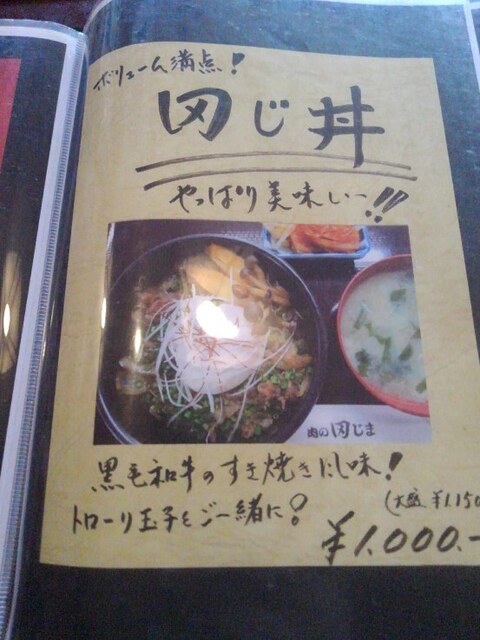 ボリューム満点!
岡じ丼
やっぱり美味しー!!
肉の岡じま
黒毛和牛のすき焼きに味!
(大盛¥1,150
トローリ玉子をご一緒に?
¥1,000.-